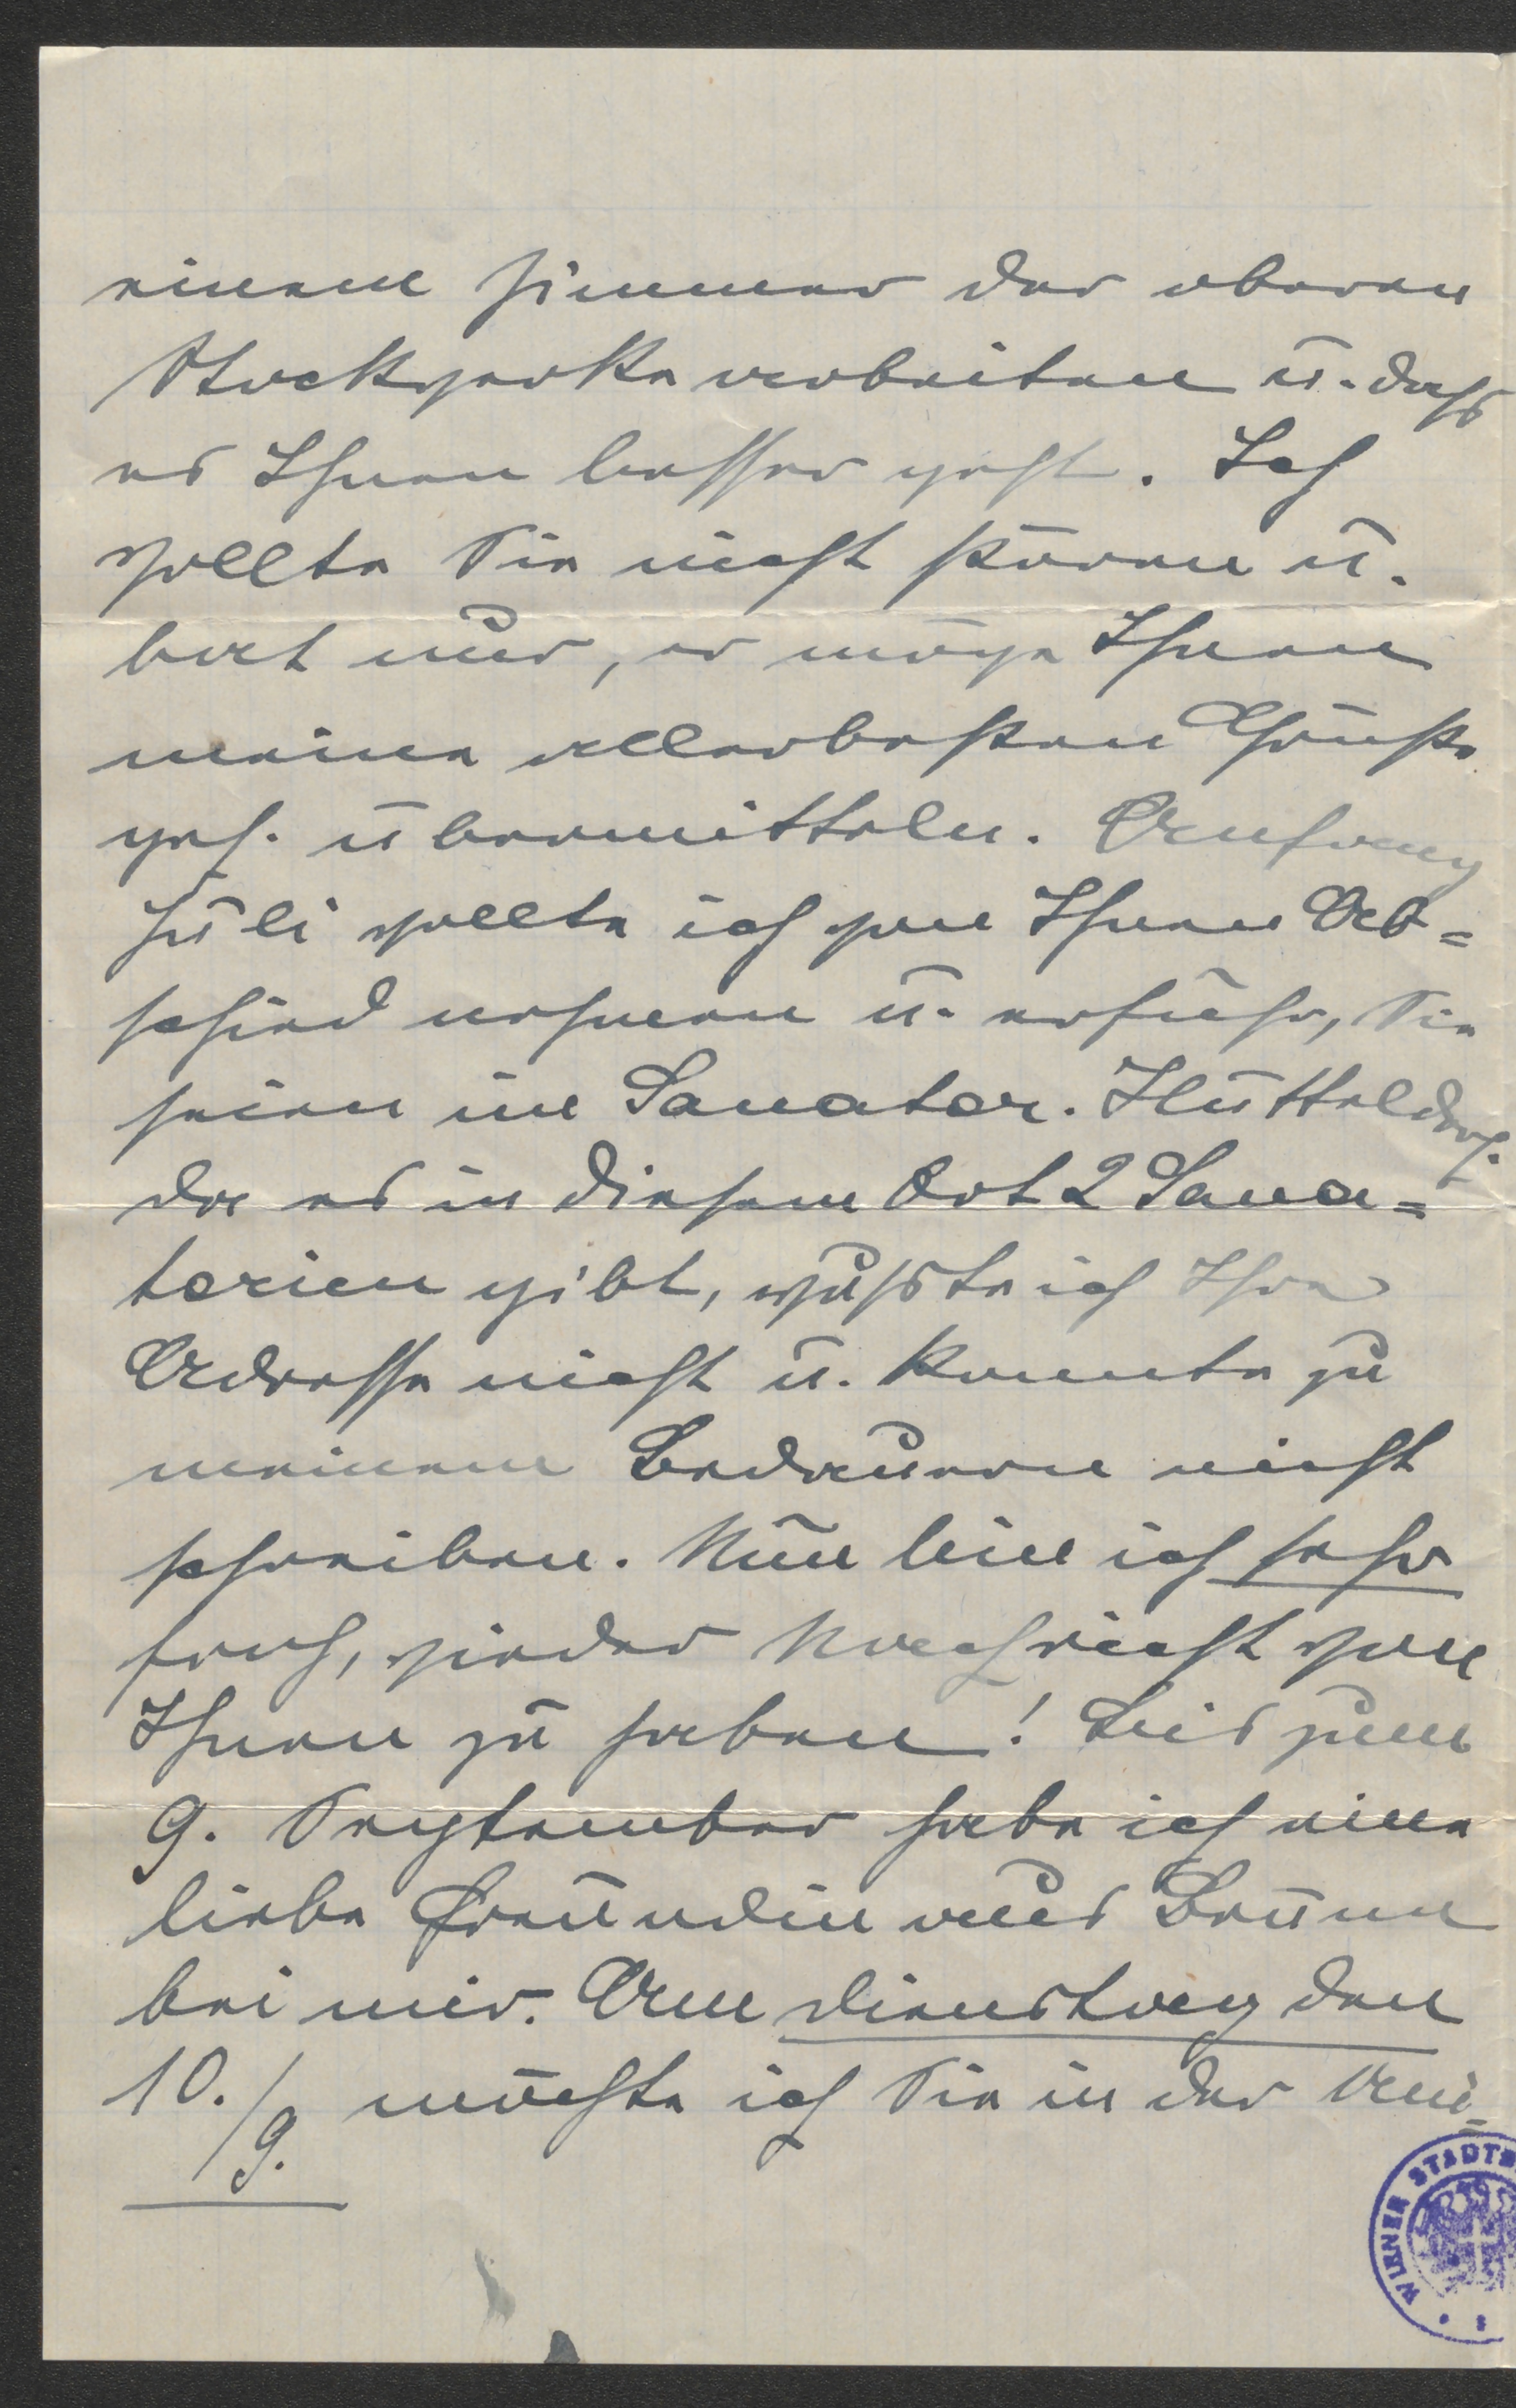 einem Zimmer der oberen
Stockwerke arbeiten u. dass
es Ihnen besser geht. Ich
wollte Sie nicht stören u.
bat nur, er möge Ihnen
meine allerbesten Grüsse
gefl. übermitteln. Anfang
Juli wollte ich von Ihnen Ab=
schied nehmen u. erfuhr, Sie
seien im Sanator. Hütteldorf.
da es in diesem Ort 2 Sana=
torien gibt, wußte ich Ihre
Adresse nicht u. konnte zu
meinem Bedauern nicht
schreiben. Nun bin ich sehr
froh, wieder Nachricht von
Ihnen zu haben! Bis zum
9. September habe ich eine
liebe Freundin aus Brünn
bei mir. Am dienstag den
10./9. möchte ich Sie in der Uni=
WIENER STADT